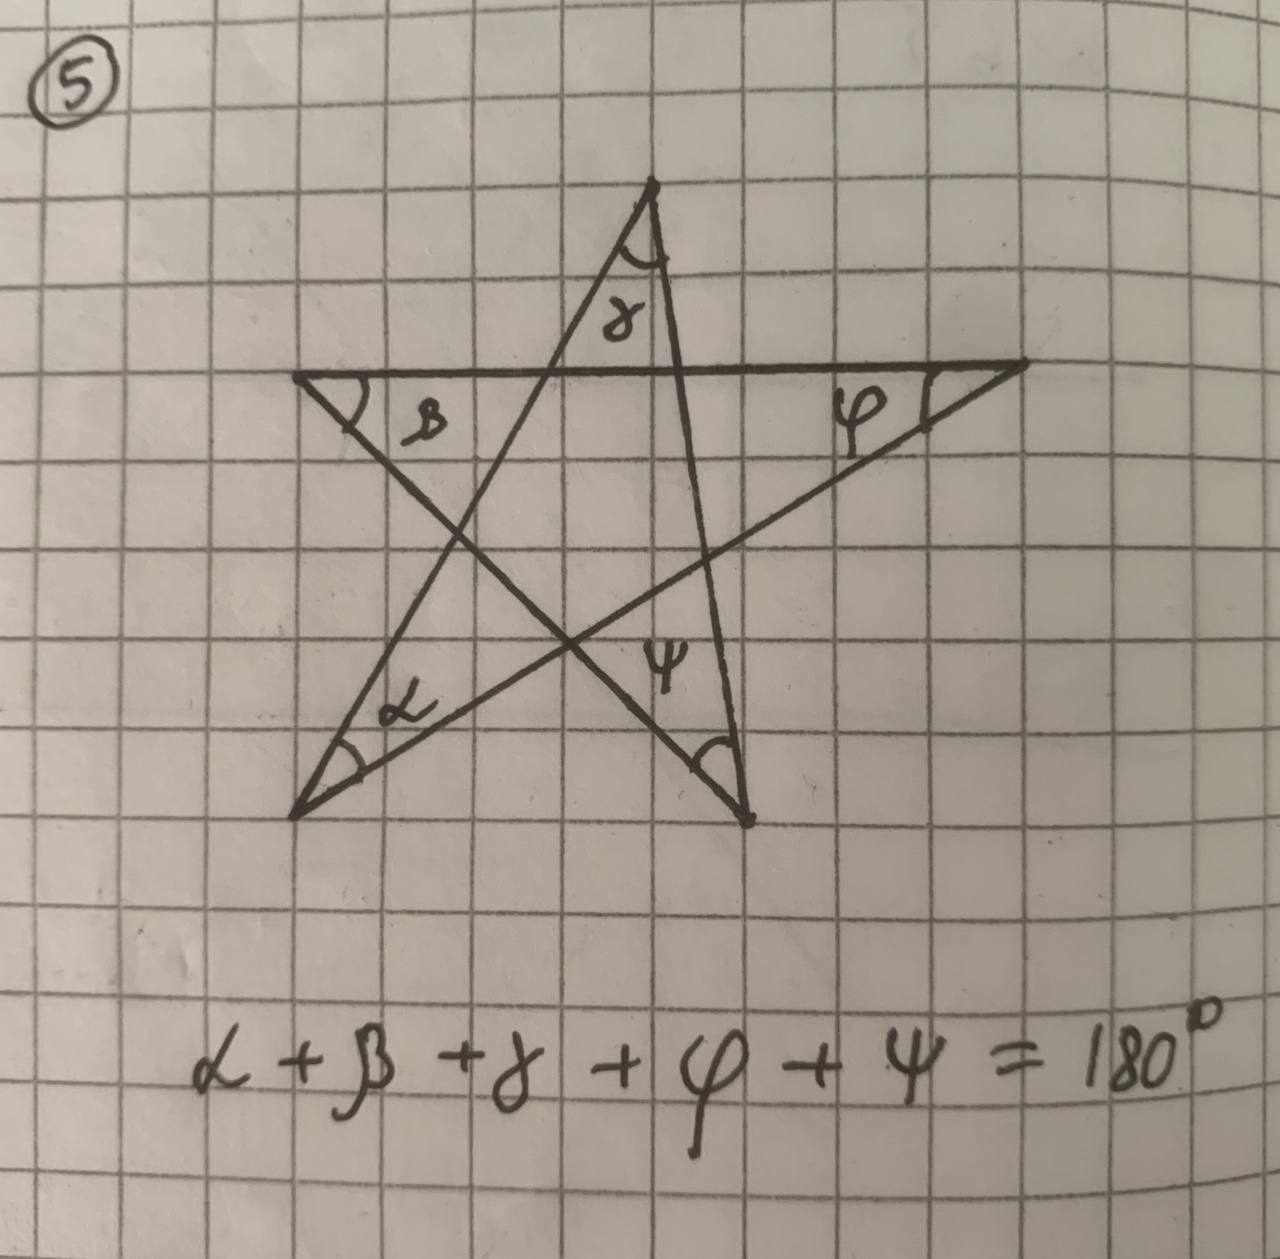 5
γ
β φ
ψ
α
α + β + γ + φ + ψ = 180°